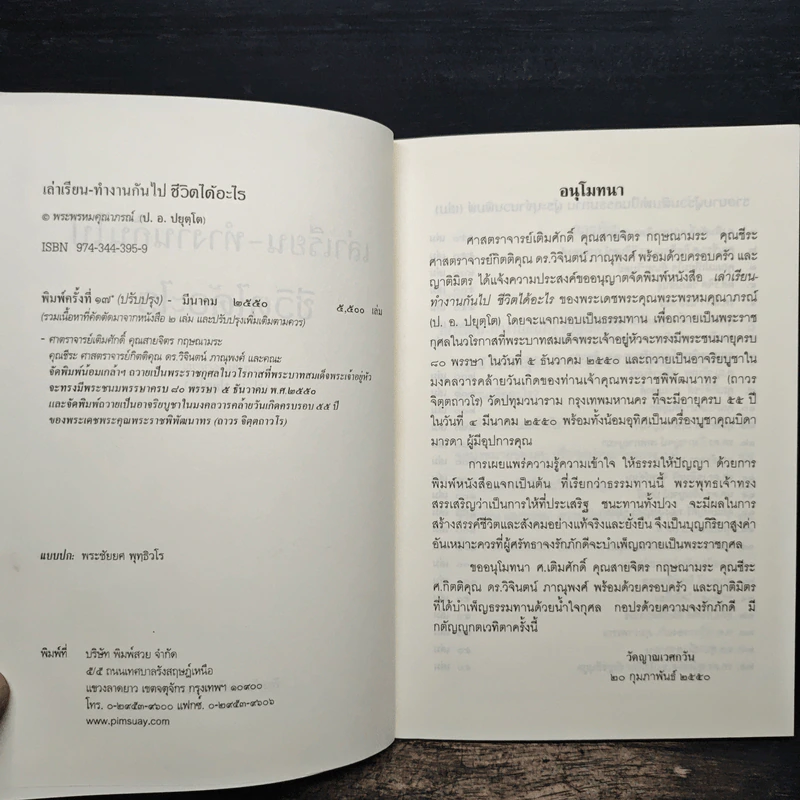 เล่าเรียน-ทำงานกันไป ชีวิตได้อะไร
© พระพรหมคุณาภรณ์ (ป. อ. ปยุตฺโต)
ISBN 974-344-395-9
พิมพ์ครั้งที่ ๑๗* (ปรับปรุง) - มีนาคม ๒๕๕๐ ๕,๕๐๐ เล่ม
(รวมเนื้อหาที่คัดตัดมาจากหนังสือ ๒ เล่ม และปรับปรุงเพิ่มเติมตามควร)
- ศาตราจารย์เติมศักดิ์ คุณสายจิตร กฤษณามระ
คุณชีระ ศาสตราจารย์กิตติคุณ ดร.วิจินตน์ ภาณุพงศ์ และคณะ
จัดพิมพ์น้อมเกล้าฯ ถวายเป็นพระราชกุศลในวโรกาสที่พระบาทสมเด็จพระเจ้าอยู่หัว
จะทรงมีพระชนมพรรษาครบ ๘๐ พรรษา ๕ ธันวาคม พ.ศ.๒๕๕๐
และจัดพิมพ์ถวายเป็นอาจริยบูชาในมงคลวารคล้ายวันเกิดครบรอบ ๕๕ ปี
ของพระเดชพระคุณพระราชพิพัฒนาทร (ถาวร จิตฺตถาวโร)
แบบปก: พระชัยยศ พุทฺธิวโร
พิมพ์ที่ บริษัท พิมพ์สวย จำกัด
๕/๕ ถนนเทศบาลรังสฤษฎ์เหนือ
แขวงลาดยาว เขตจตุจักร กรุงเทพฯ ๑๐๙๐๐
โทร. ๐-๒๙๕๓-๙๖๐๐ แฟกซ์. ๐-๒๙๕๓-๙๖๐๖
www.pimsuay.com
อนุโมทนา
ศาสตราจารย์เติมศักดิ์ คุณสายจิตร กฤษณามระ คุณชีระ
ศาสตราจารย์กิตติคุณ ดร.วิจินตน์ ภาณุพงศ์ พร้อมด้วยครอบครัว และ
ญาติมิตร ได้แจ้งความประสงค์ขออนุญาตจัดพิมพ์หนังสือ เล่าเรียน-
ทำงานกันไป ชีวิตได้อะไร ของพระเดชพระคุณพระพรหมคุณาภรณ์
(ป. อ. ปยุตฺโต) โดยจะแจกมอบเป็นธรรมทาน เพื่อถวายเป็นพระราช
กุศลในวโรกาสที่พระบาทสมเด็จพระเจ้าอยู่หัวจะทรงมีพระชนมายุครบ
๘๐ พรรษา ในวันที่ ๕ ธันวาคม ๒๕๕๐ และถวายเป็นอาจริยบูชาใน
มงคลวารคล้ายวันเกิดของท่านเจ้าคุณพระราชพิพัฒนาทร (ถาวร
จิตฺตถาวโร) วัดปทุมวนาราม กรุงเทพมหานคร ที่จะมีอายุครบ ๕๕ ปี
ในวันที่ ๔ มีนาคม ๒๕๕๐ พร้อมทั้งน้อมอุทิศเป็นเครื่องบูชาคุณบิดา
มารดา ผู้มีอุปการคุณ
การเผยแพร่ความรู้ความเข้าใจ ให้ธรรมให้ปัญญา ด้วยการ
พิมพ์หนังสือแจกเป็นต้น ที่เรียกว่าธรรมทานนี้ พระพุทธเจ้าทรง
สรรเสริญว่าเป็นการให้ที่ประเสริฐ ชนะทานทั้งปวง จะมีผลในการ
สร้างสรรค์ชีวิตและสังคมอย่างแท้จริงและยั่งยืน จึงเป็นบุญกิริยาสูงค่า
อันเหมาะควรที่ผู้ศรัทธาจงรักภักดีจะบำเพ็ญถวายเป็นพระราชกุศล
ขออนุโมทนา ศ.เติมศักดิ์ คุณสายจิตร กฤษณามระ คุณชีระ
ศ.กิตติคุณ ดร.วิจินตน์ ภาณุพงศ์ พร้อมด้วยครอบครัว และญาติมิตร
ที่ได้บำเพ็ญธรรมทานด้วยน้ำใจกุศล กอปรด้วยความจงรักภักดี มี
กตัญญูกตเวทิตาครั้งนี้
วัดญาณเวศกวัน
๒๐ กุมภาพันธ์ ๒๕๕๐